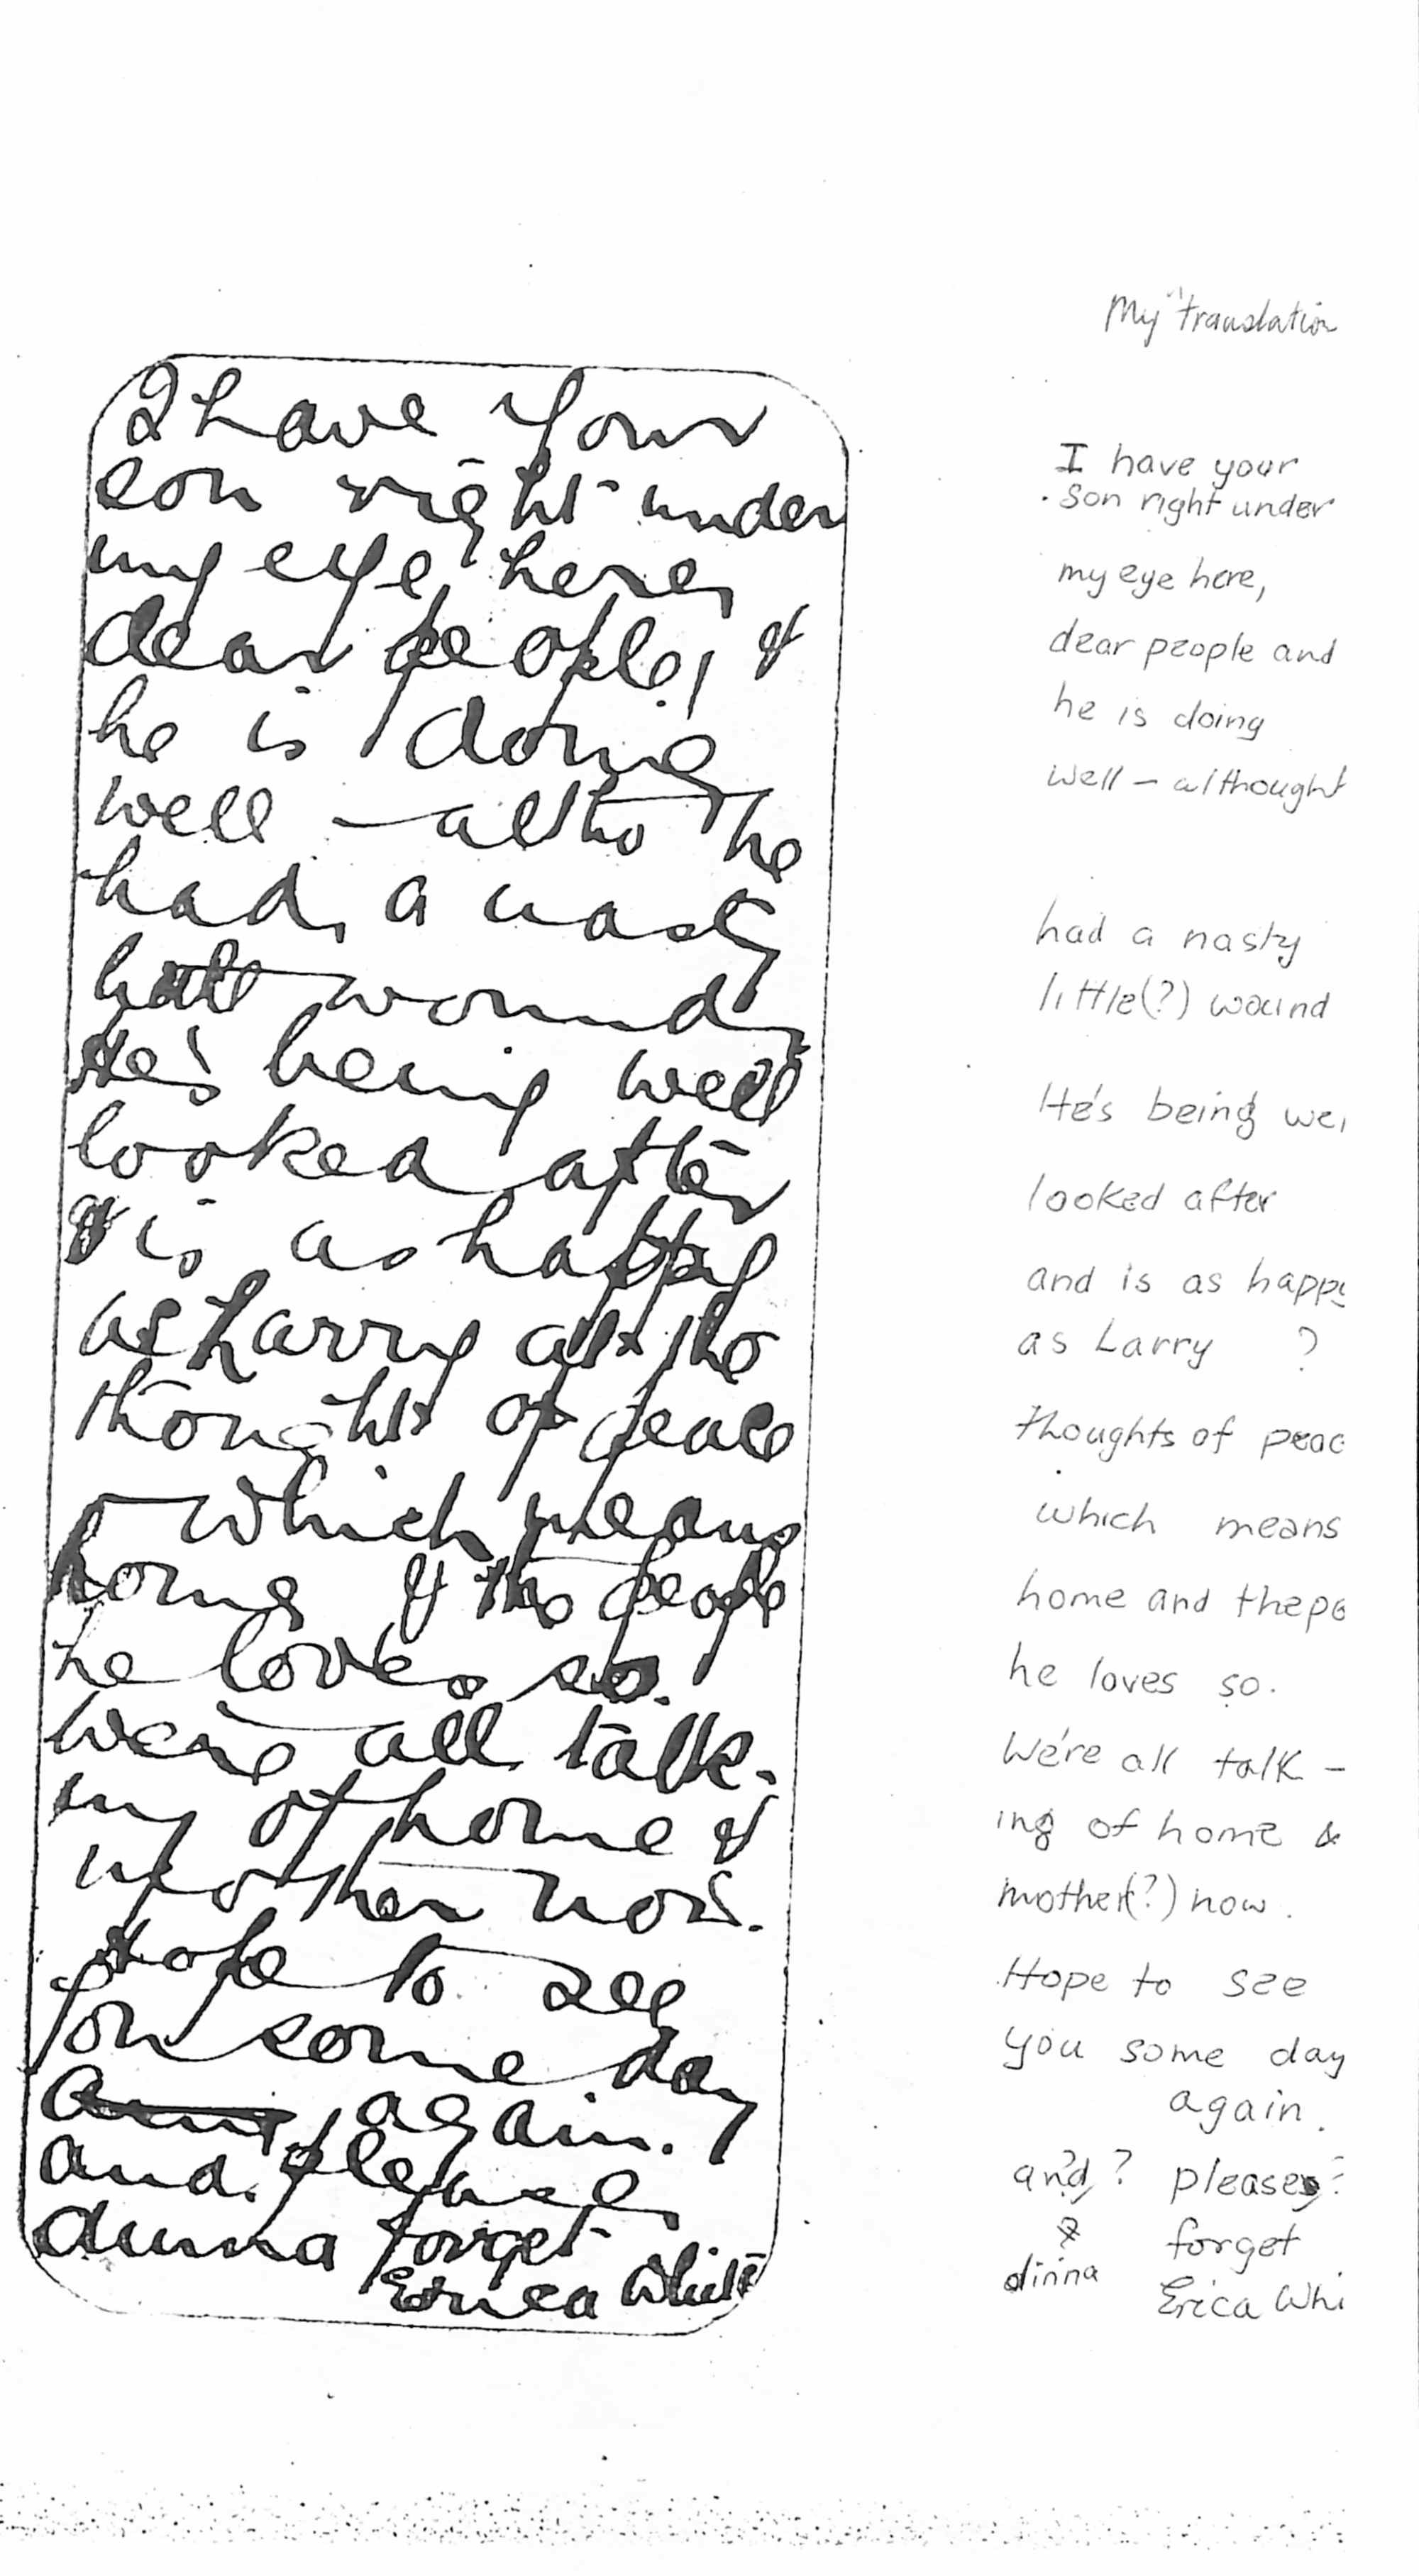 I have your
son right under
my eye here,
dear people, &
he is doing
well — altho he
had, a nasty
wound,
He's being well
looked after
& is as happy
as Larry at the
thought of peace
— which means
home & the people
he loves so.
We're all talk-
ing of home &
mother now.
Hope to see
you some day
again.
and please
dinna forget
Erica White
My "translation
I have your
son right under
my eye here,
dear people and
he is doing
well – althought
had a nasty
little(?) wound
He's being we
looked after
and is as happy
as Larry ?
thoughts of peac
which means
home and the pe
he loves so.
We're all talk –
ing of home &
mother(?) now.
Hope to see
you some day
again.
and? please
? forget
dinna
Erica Whi